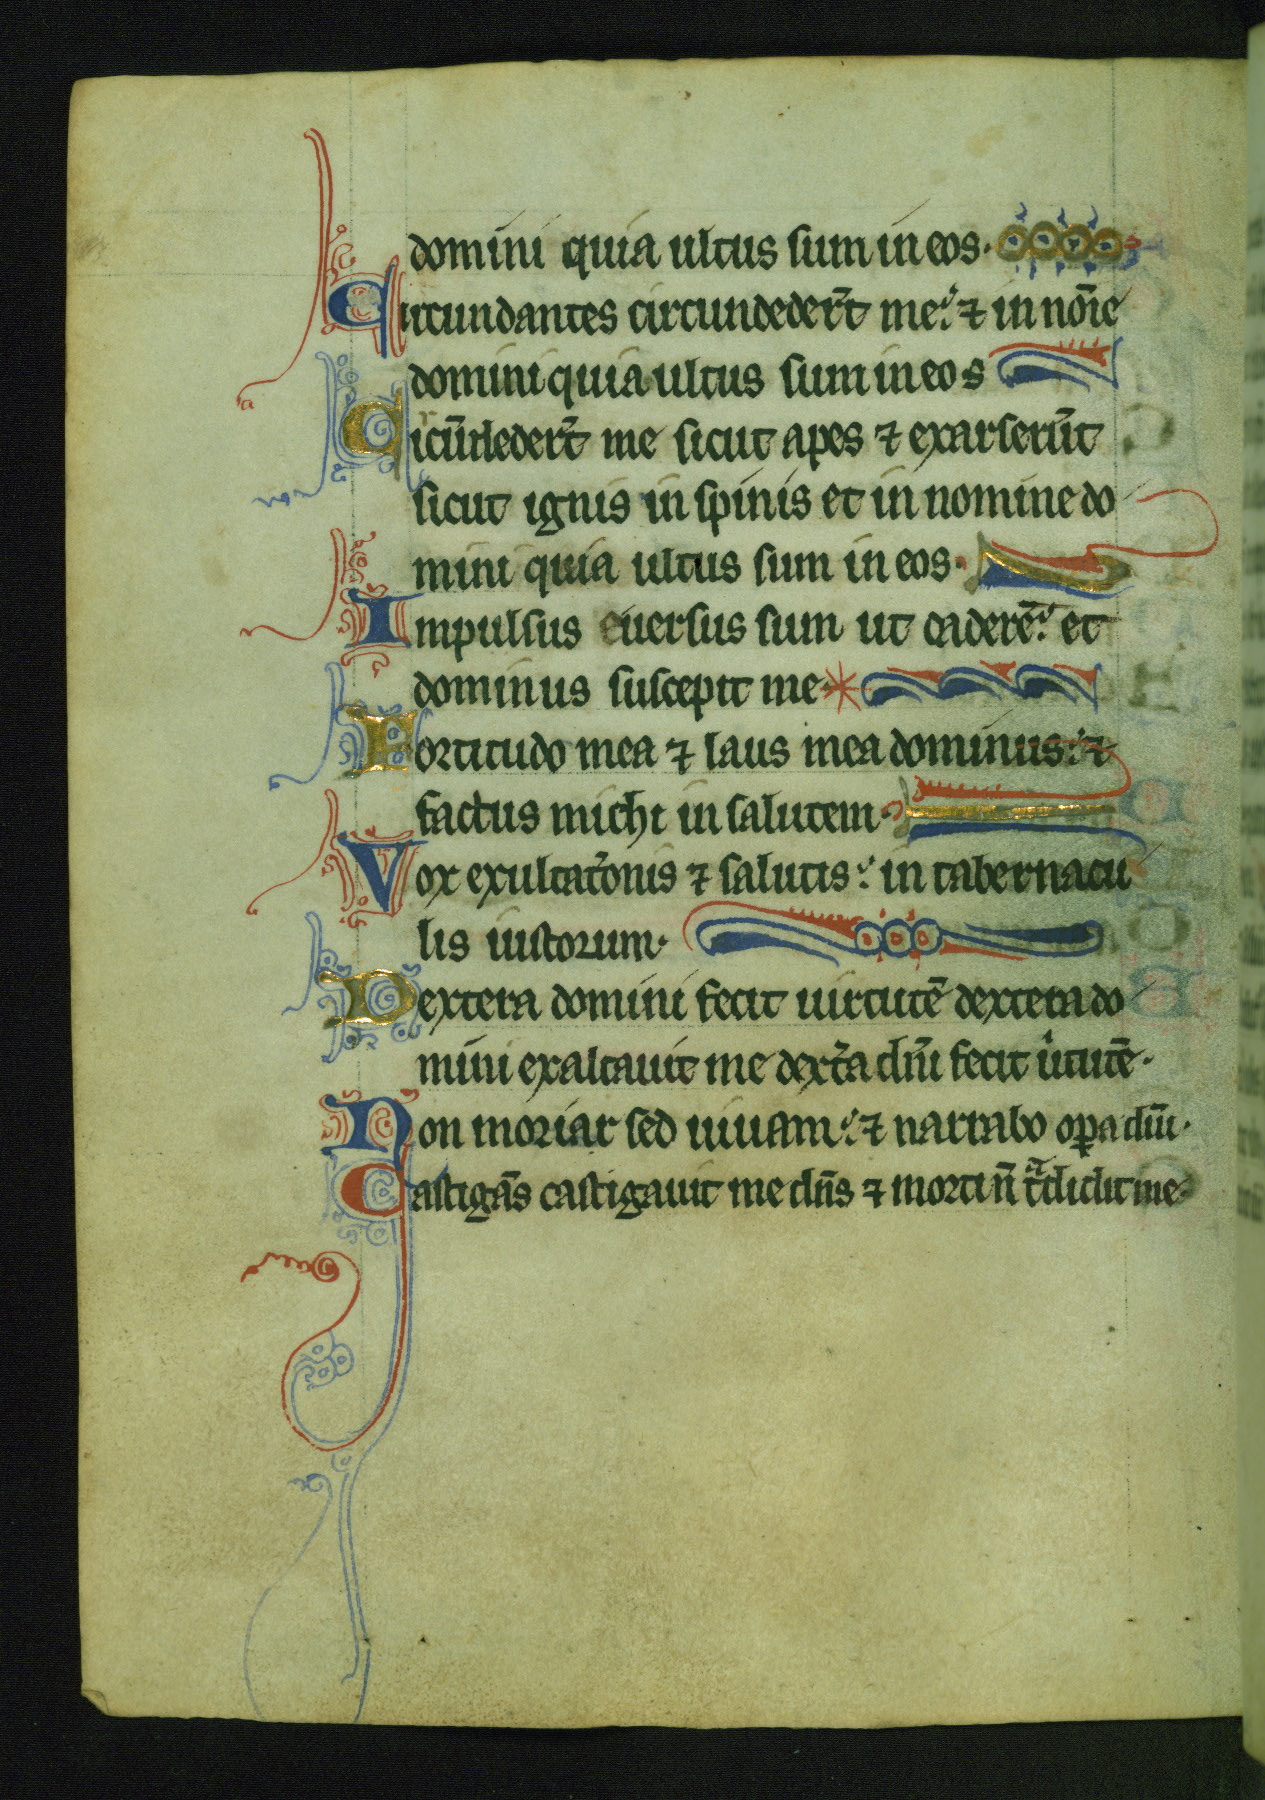 domini quia ultus sum in eos.
Circundantes circundeder̄t me: ⁊ in nōīe
domini quia ultus sum in eos
Cicūdeder̄t me sicut apes ⁊ exarserūt
sicut ignis in spinis et in nomine do
mini quia ultus sum in eos.
Impulsus euersus sum ut caderē: et
dominus suscepit me
Fortitudo mea ⁊ laus mea dominus: ⁊
factus michi in salutem.
Vox exultat̄onis ⁊ salutis: in tabernacu
lis iustorum.
Dextera domini fecit uirtutē dextera do
mini exaltauit me dext̄a dn̄i fecit ũtutē.
Non moriar sed uiuam: ⁊ narrabo oꝑa dn̄i.
Castigās castigauit me dn̄s ⁊ morti n̄ tͣdidit me.